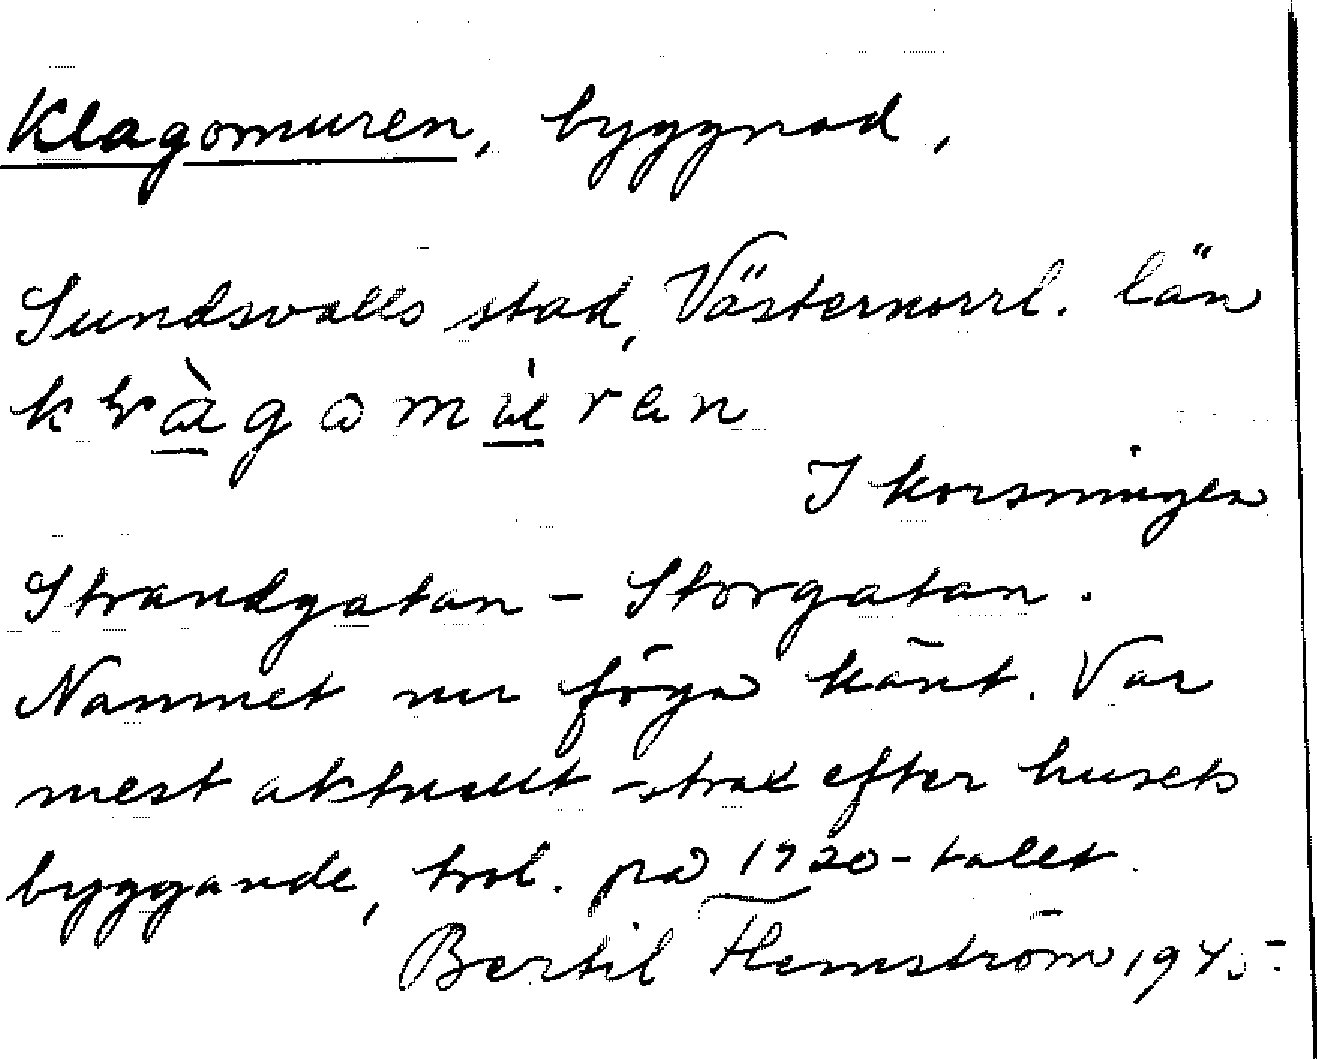 Klagomuren, byggnad,
Sundsvalls stad, Västernorrl. län
I korsningen
Strandgatan - Storgatan.
Namnet nu föga känt. Var
mest aktuellt strax efter husets
byggande, trol. på 1920-talet.
Bertil Flemström 1945